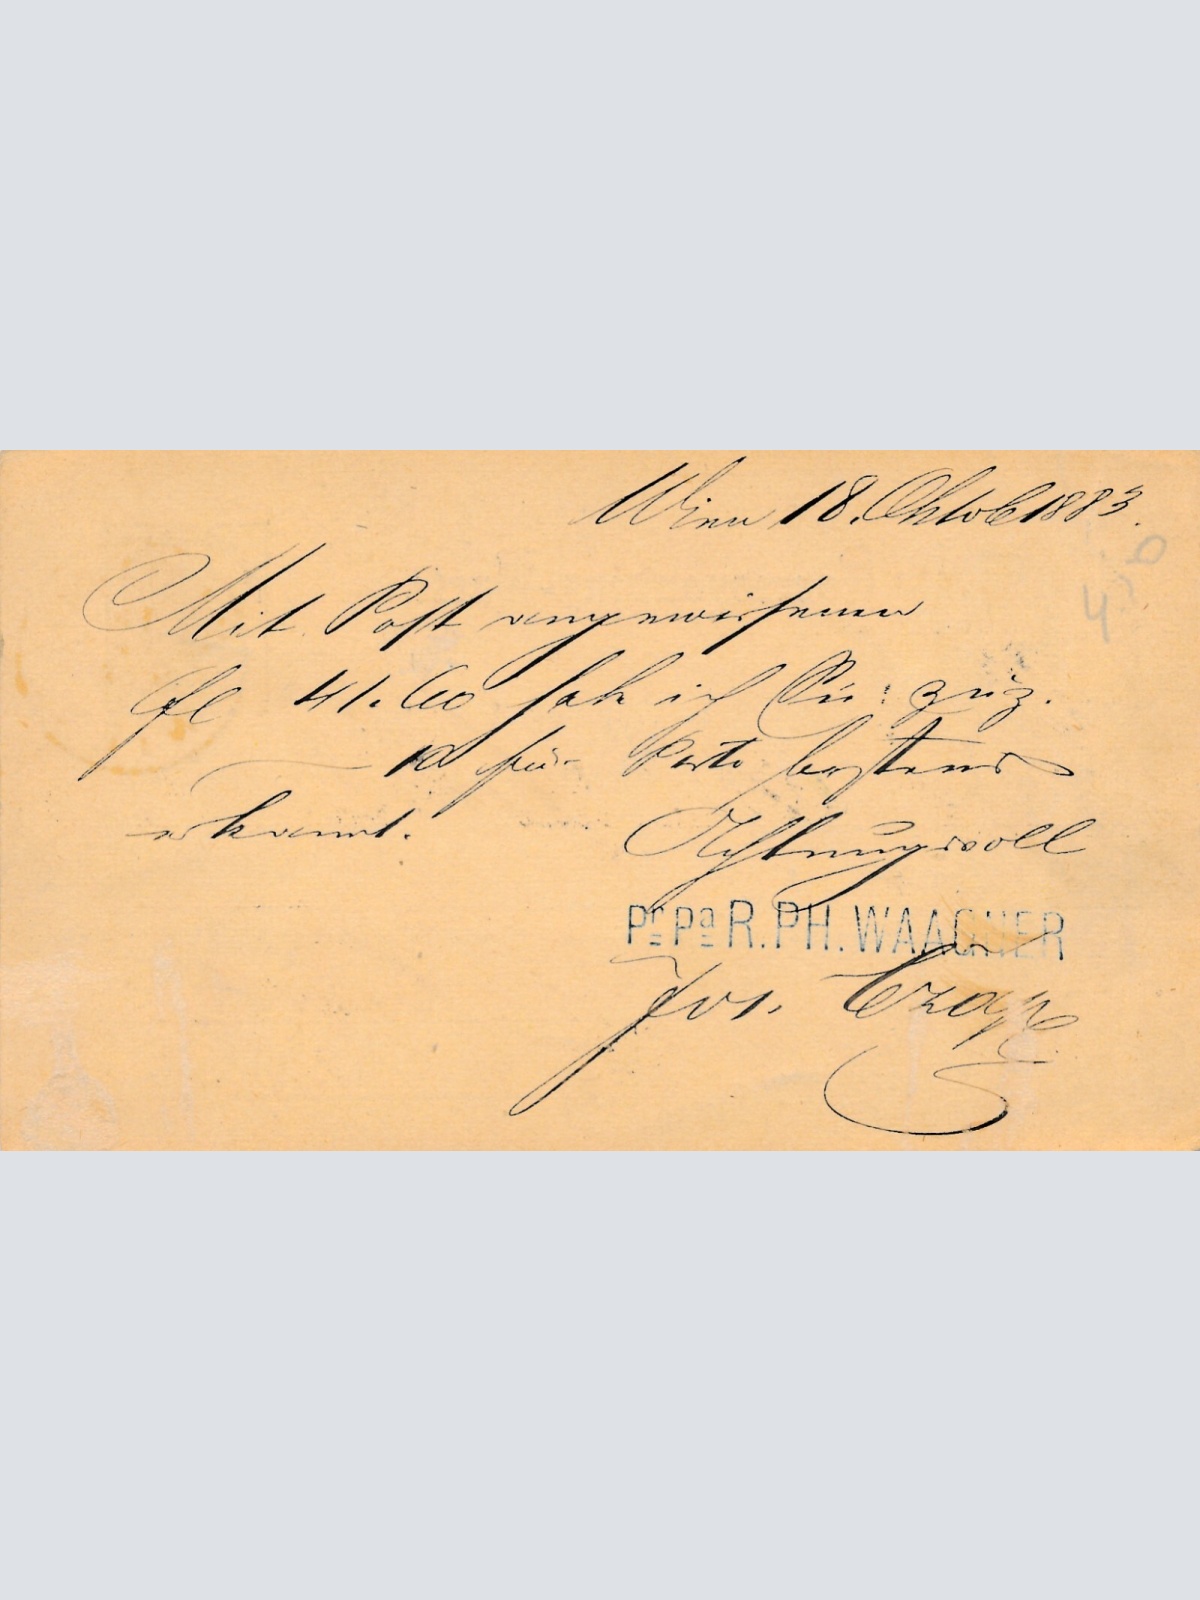 Wien 18. Oktob 1883.
Mit Post angewiesenen
fl 41.60 hab ich Sie: zuz.
10 für Porto bestens
erkannt.
Achtungsvoll
Pr Pa R. PH. WAAGNER
Jos. Czap